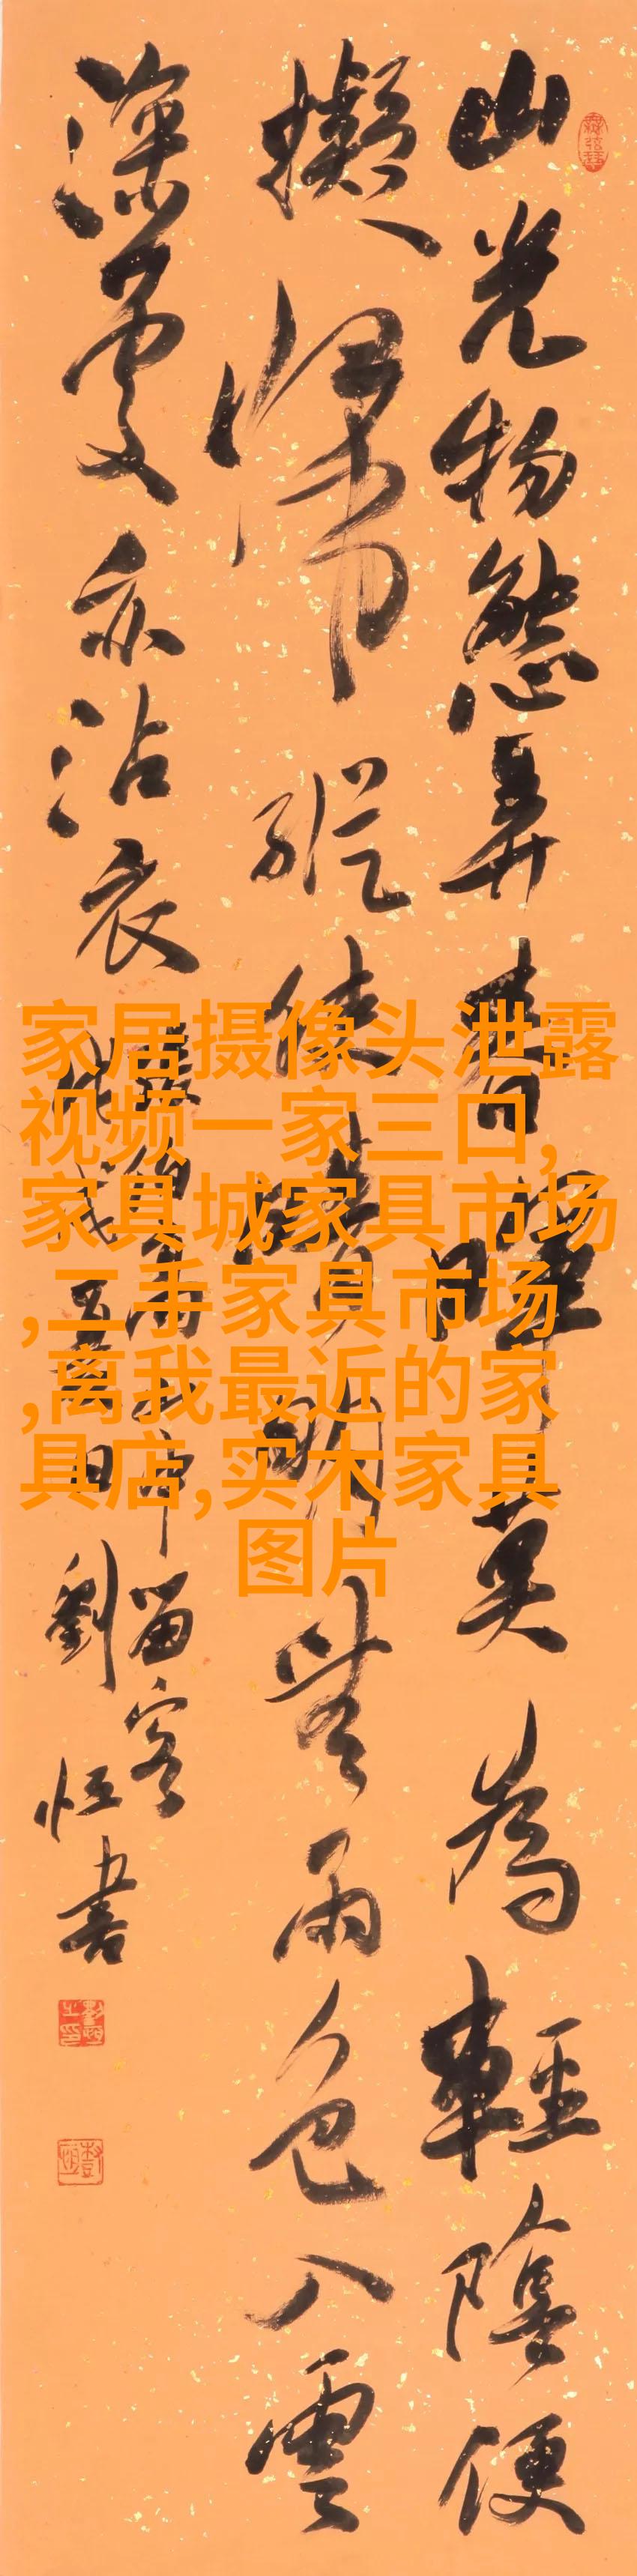 山光物態弄春暉莫為輕陰便
擬歸縱使晴明無雨色入雲
深處亦沾衣
留客
劉恒書
家居摄像头泄露
视频一家三口,
家具城家具市场
,二手家具市场
,离我最近的家
具店,实木家具
图片